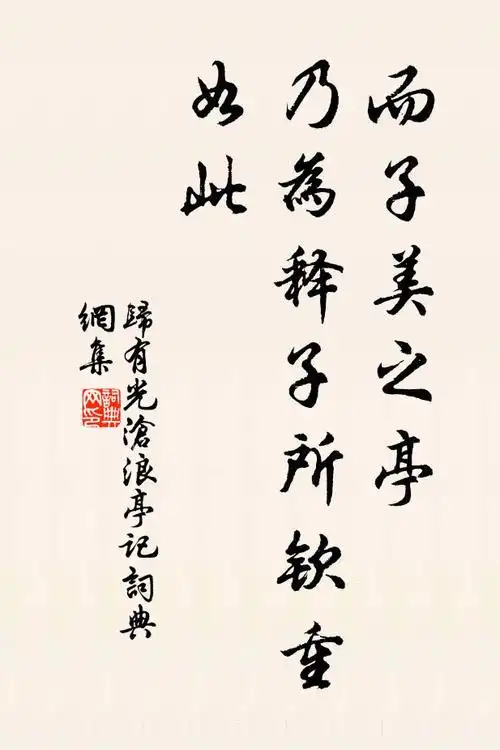 而子美之亭
乃為释子所欽重
如此
歸有光滄浪亭记詞典
網集
詞典
网印